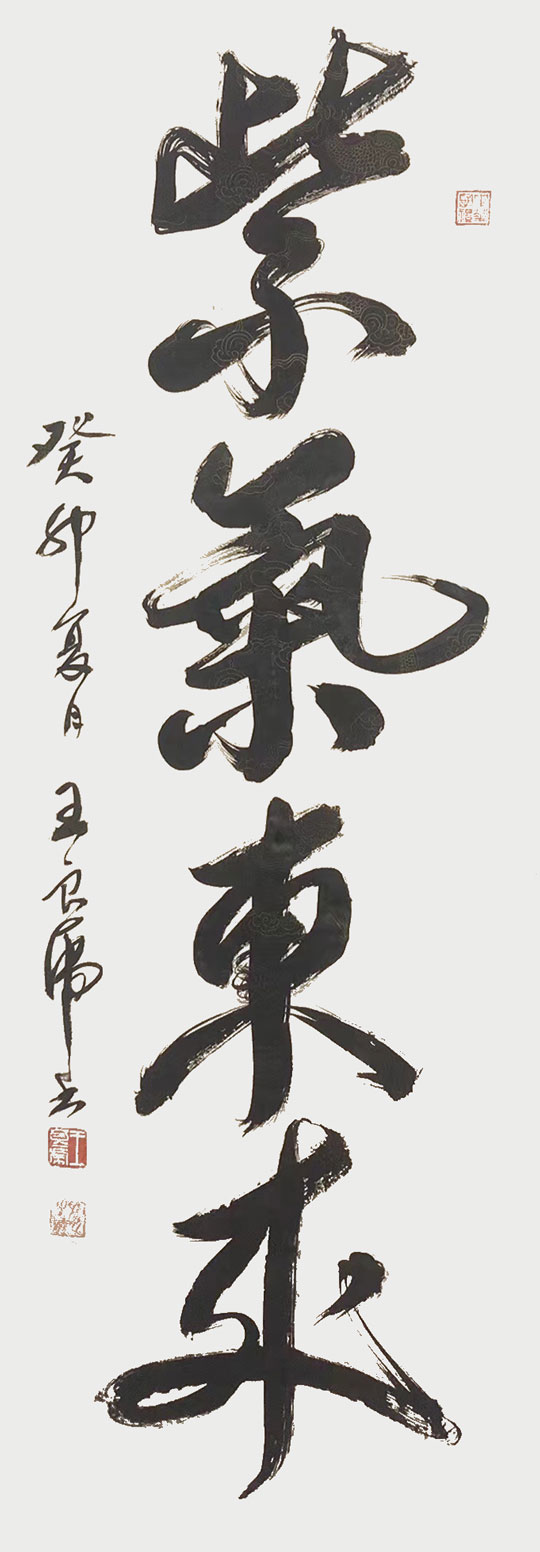 紫氣東來
癸卯夏月 王良虎书